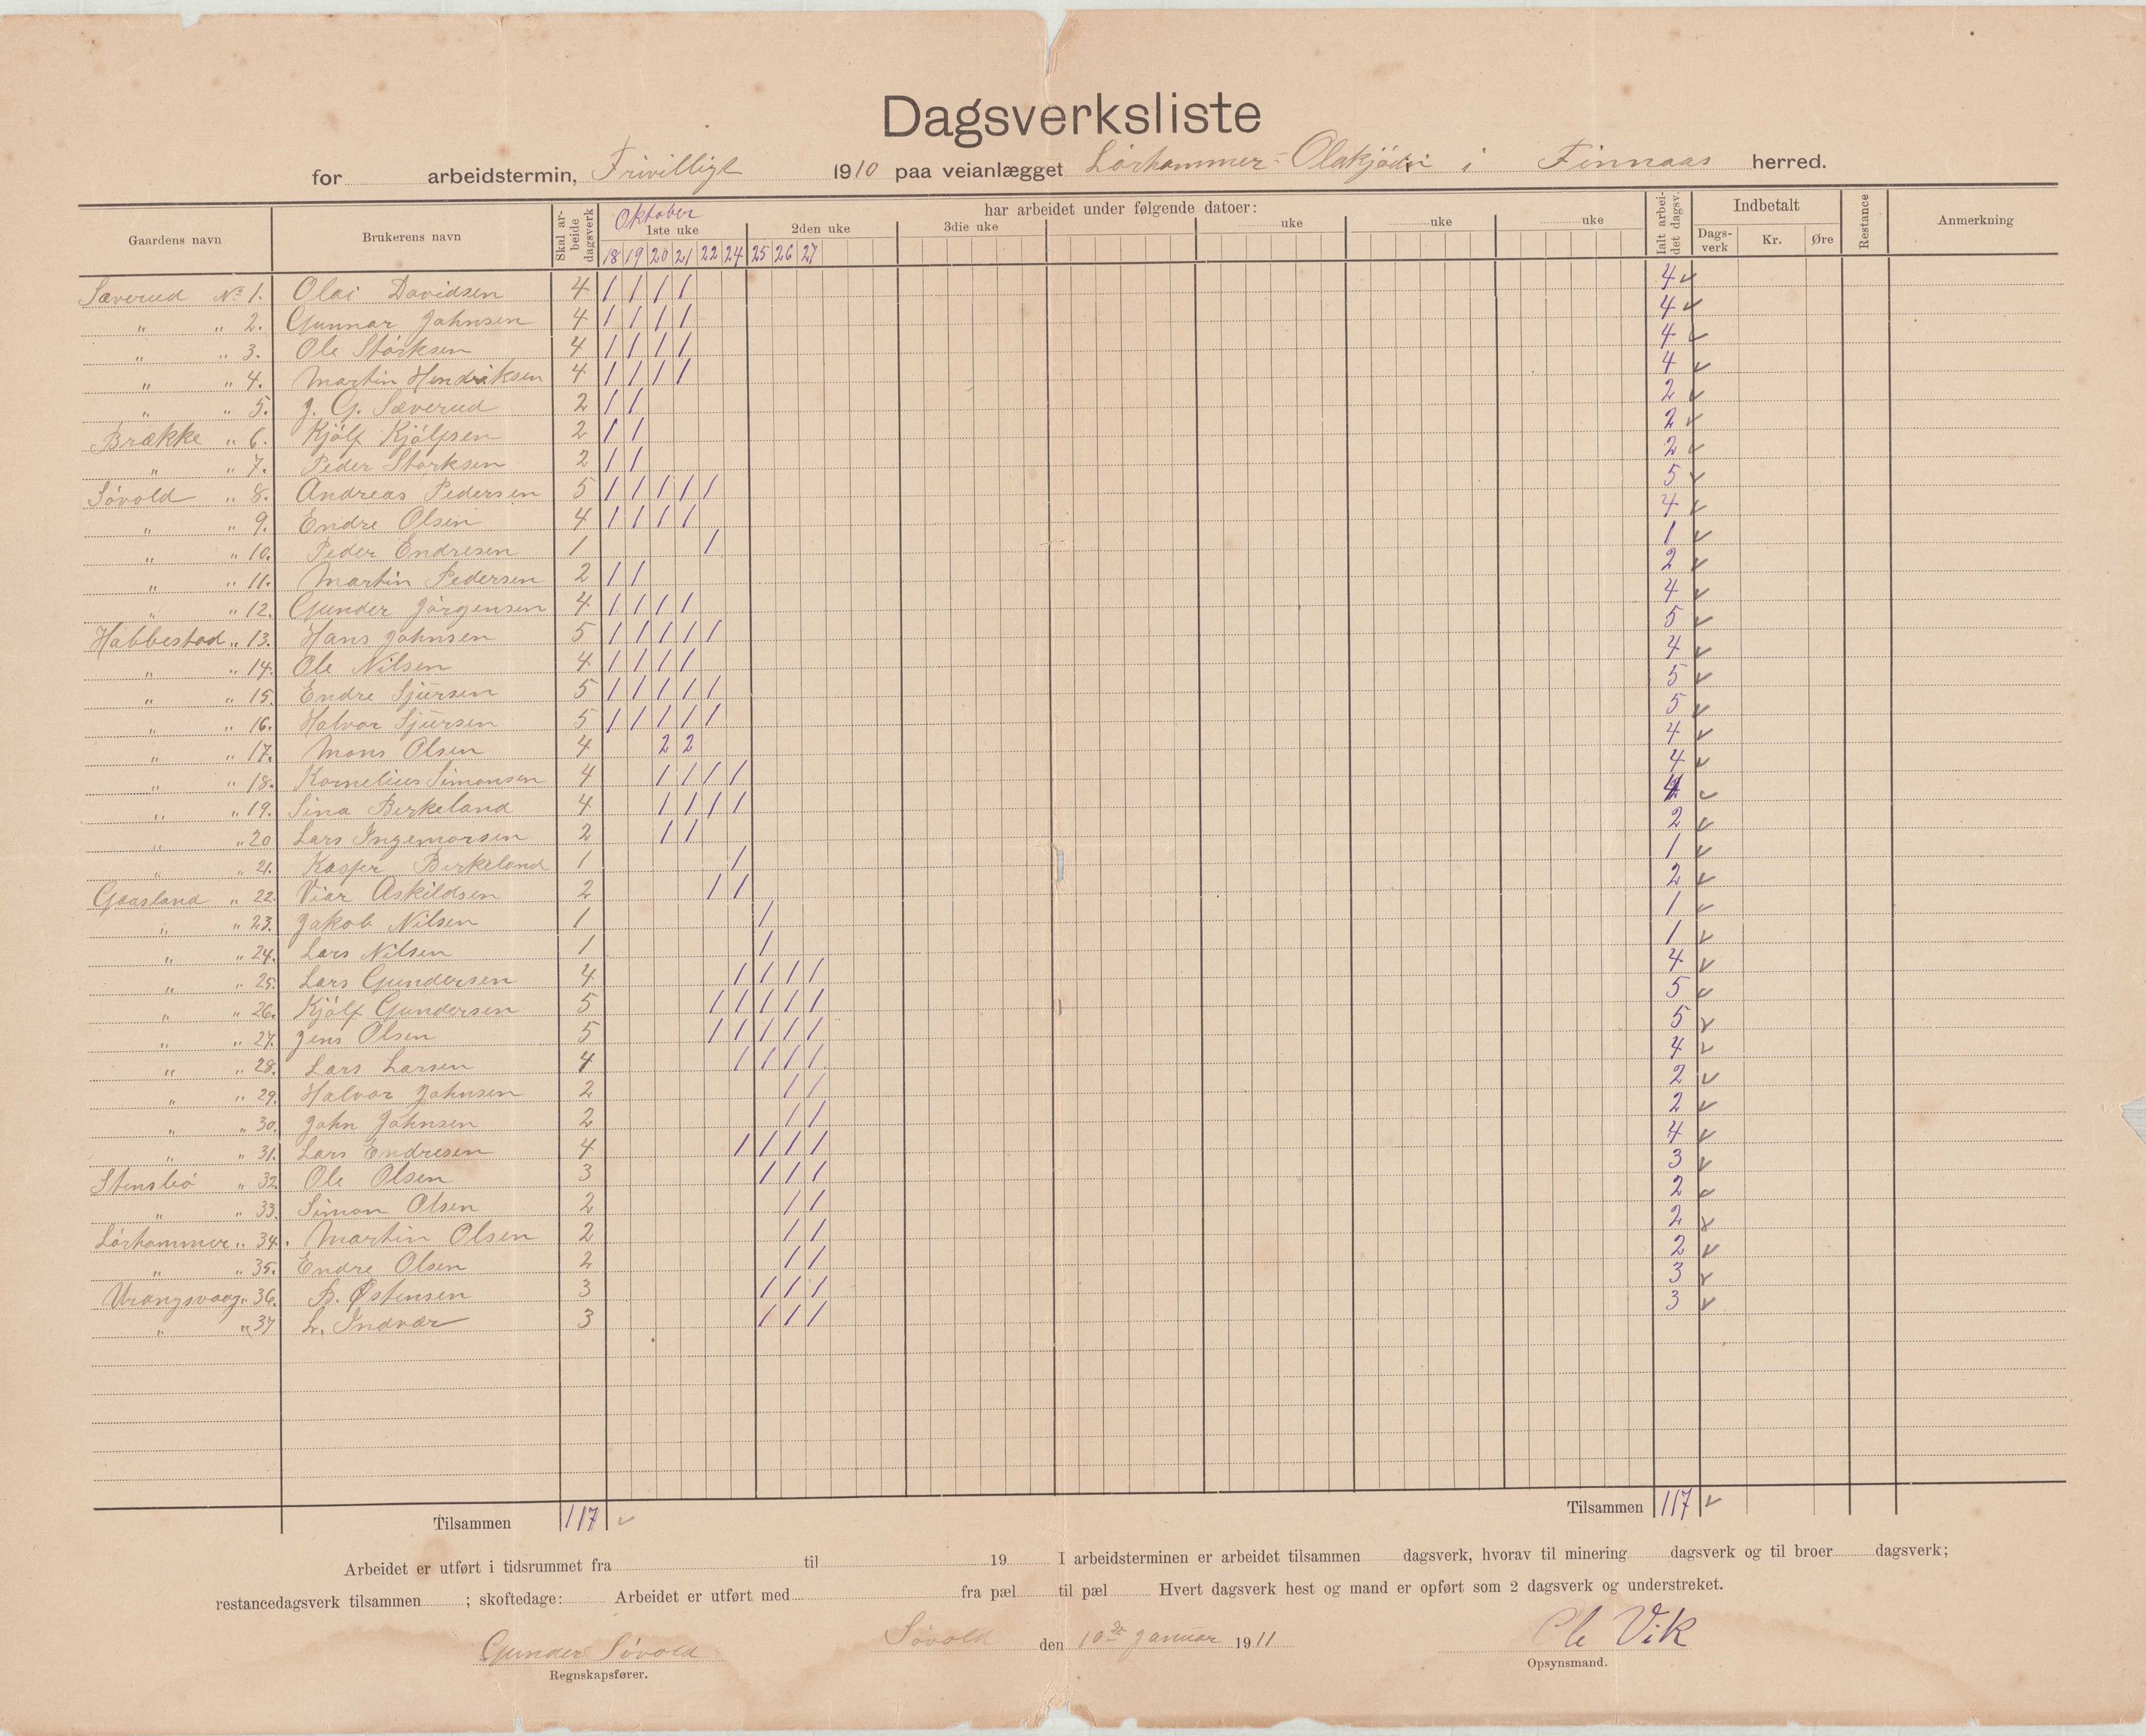 Dagsverksliste
for arbeidstermin, Frivilligt 1910 paa veianlægget Lörhammer - Olakjödn i Finnaas herred.
Gaardens navn Brukerens navn Skal arbeide dagsverk har arbeidet under følgende datoer: Ialt arbeidet dagsv. Indbetalt Restance Anmerkning
Oktober
1ste uke 2den uke 3die uke uke uke uke
Dagsverk Kr. Øre
18 19 20 21 22 24 25 26 27
Sæverud No 1. Olai Davidsen 4 / / / / 4 ✓
" " 2. Gunnar Johnsen 4 / / / / 4 ✓
" " 3. Ole Störksen 4 / / / / 4 ✓
" " 4. Martin Hendriksen 4 / / / / 4 ✓
" " 5. J. G. Sæverud 2 / / 2 ✓
Brække " 6. Kjölf Kjölfsen 2 / / 2 ✓
" " 7. Peder Störksen 2 / / 2 ✓
Sövold " 8. Andreas Pedersen 5 / / / / / 5 ✓
" " 9. Endre Olsen 4 / / / / 4 ✓
" " 10. Peder Endresen 1 / 1 ✓
" " 11. Martin Pedersen 2 / / 2 ✓
" " 12. Gunder Jörgensen 4 / / / / 4 ✓
Habbestad " 13. Hans Johnsen 5 / / / / / 5 ✓
" " 14. Ole Nilsen 4 / / / / 4 ✓
" " 15. Endre Sjursen 5 / / / / / 5 ✓
" " 16. Halvor Sjursen 5 / / / / / 5 ✓
" " 17. Mons Olsen 4 2 2 4 ✓
" " 18. Kornelius Simonsen 4 / / / / 4 ✓
" " 19. Sina Birkeland 4 / / / / 4 ✓
" " 20 Lars Ingemorsen 2 / / 2 ✓
" " 21. Kasper Birkeland 1 / 1 ✓
Gaasland " 22. Viar Askildsen 2 / / 2 ✓
" " 23. Jakob Nilsen 1 / 1 ✓
" " 24. Lars Nilsen 1 / 1 ✓
" " 25. Lars Gundersen 4 / / / / 4 ✓
" " 26. Kjölf Gundersen 5 / / / / / 5 ✓
" " 27. Jens Olsen 5 / / / / / 5 ✓
" " 28. Lars Larsen 4 / / / / 4 ✓
" " 29. Halvor Johnsen 2 / / 2 ✓
" " 30. John Johnsen 2 / / 2 ✓
" " 31. Lars Endresen 4 / / / / 4 ✓
Stensbö " 32. Ole Olsen 3 / / / 3 ✓
" " 33. Simon Olsen 2 / / 2 ✓
Lörhammer " 34. Martin Olsen 2 / / 2 ✓
" " 35. Endre Olsen 2 / / 2 ✓
Urangsvaag " 36. B. Østensen 3 / / / 3 ✓
" " 37 L. Indvær 3 / / / 3 ✓
Tilsammen 117 ✓ Tilsammen 117 ✓
Arbeidet er utført i tidsrummet fra til 19 I arbeidsterminen er arbeidet tilsammen dagsverk, hvorav til minering dagsverk og til broer dagsverk;
restancedagsverk tilsammen ; skoftedage: Arbeidet er utført med fra pæl til pæl Hvert dagsverk hest og mand er opført som 2 dagsverk og understreket.
Gunder Sövold Sövold den 10de Januar 1911 Ole Vik
Regnskapsfører. Opsynsmand.